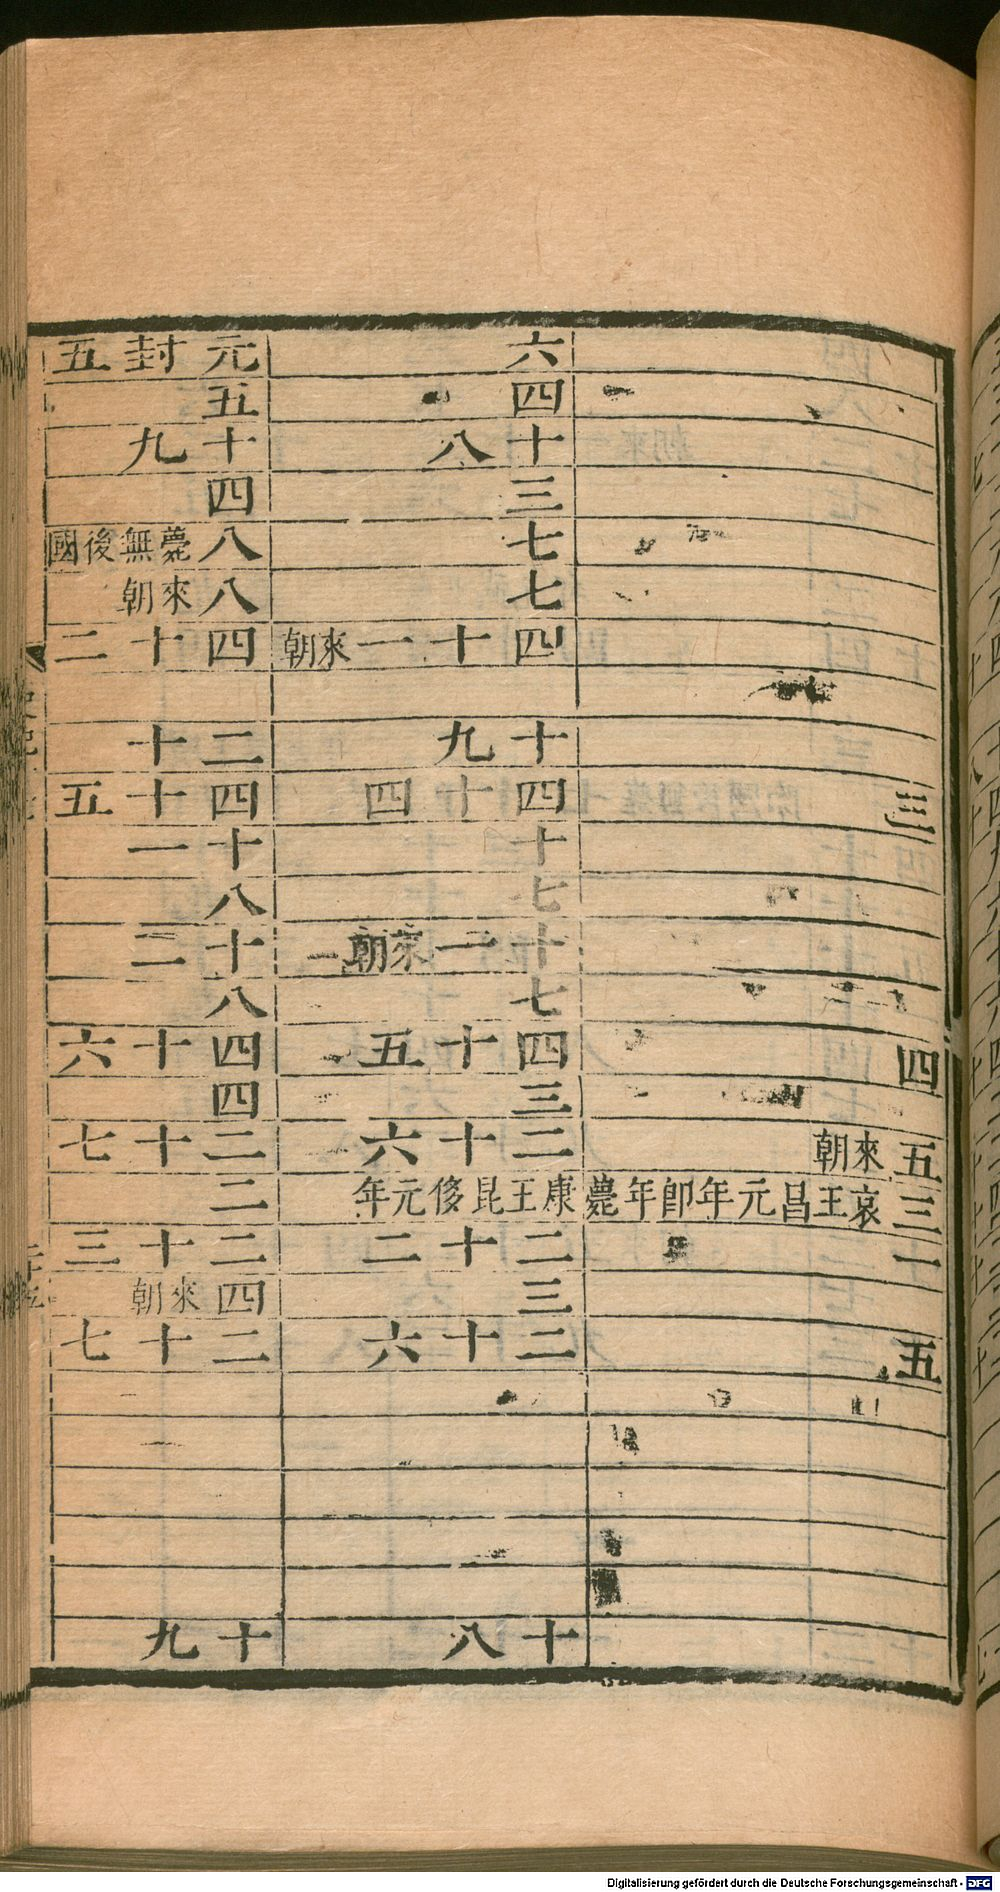 三
四
五來朝
三哀王昌元年即年薨康王昆侈元年
五
六
四
十八
三
七
七
四十一來朝
十九
四十四
十
七
十一來朝
七
四十五
三
二十六
二十二
三
二十六
十八
元封五
五
十九
四
八薨無後國
八來朝
四十二
二十
四十五
十一
八
十二
八
四十六
四
二十七
二
二十三
四來朝
二十七
十九
Digitalisierung gefördert durch die Deutsche Forschungsgemeinschaft - DFG